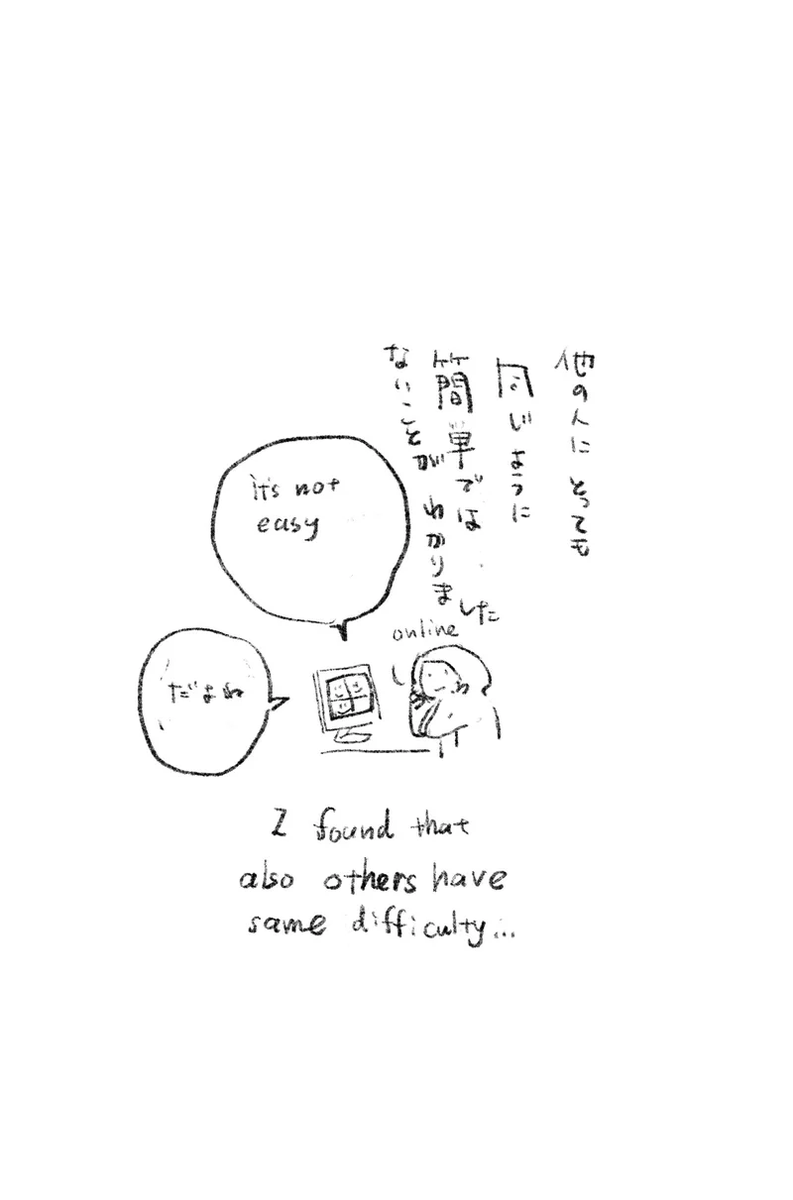 他の人にとっても
同じように
簡単では
ないことがわかりました
it's not
easy
online
だよね
I found that
also others have
same difficulty...